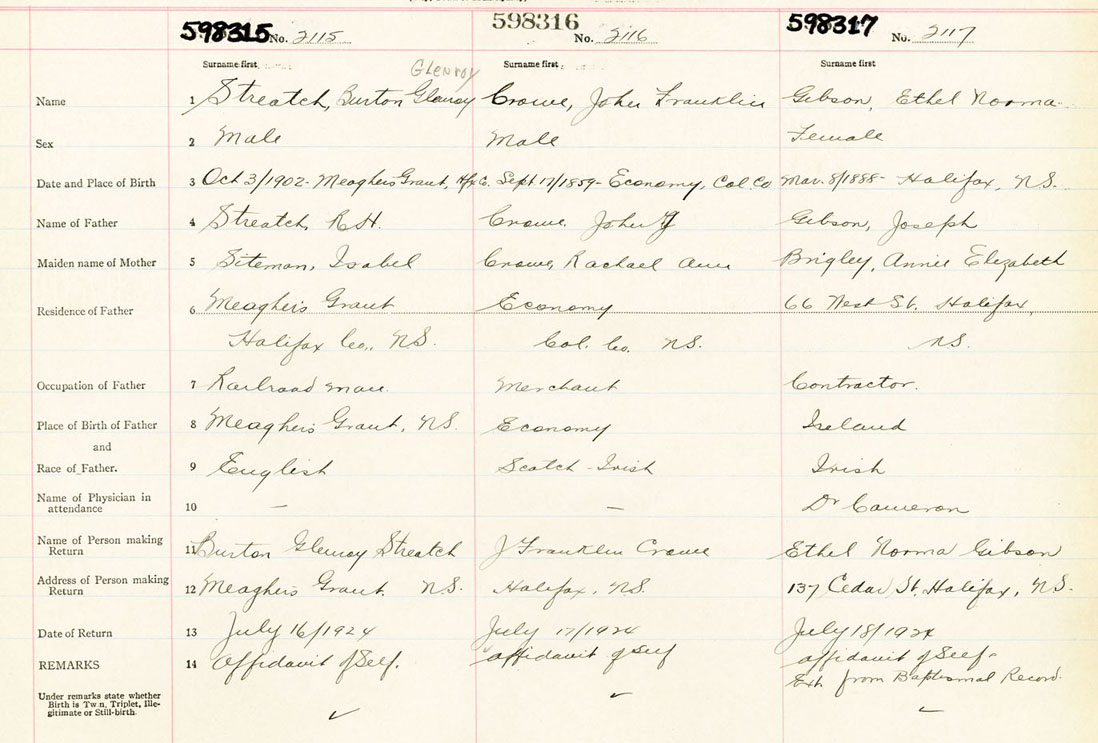 598315 No. 2115 598316 No. 2116 598317 No. 2117
Surname first Surname first Surname first
GLENROY
Name 1 Streatch, Burton Glenroy Crowe, John Franklin Gibson, Ethel Norma
Sex 2 Male Male Female
Date and Place of Birth 3 Oct 3/1902- Meaghers Grant, Hfx C. Sept. 17/1859- Economy, Col Co Mar. 8/1888- Halifax, N.S.
Name of Father 4 Streatch, R.H. Crowe, John Gibson, Joseph
Maiden name of Mother 5 Siteman, Isabel Crowe, Rachael Ann Brigley, Annie Elizabeth
Residence of Father 6 Meaghers Grant Economy 66 West St. Halifax,
Halifax Co., N.S. Col. Co. N.S. N.S.
Occupation of Father 7 Railroad man. Merchant Contractor.
Place of Birth of Father 8 Meaghers Grant, N.S. Economy Ireland
and
Race of Father. 9 English Scotch-Irish Irish
Name of Physician in
attendance 10 — — Dr Cameron
Name of Person making
Return 11 Burton Glenroy Streatch J Franklin Crowe Ethel Norma Gibson
Address of Person making
Return 12 Meaghers Grant. N.S. Halifax, N.S. 137 Cedar St. Halifax, N.S.
Date of Return 13 July 16/1924 July 17/1924 July 18/1924
REMARKS 14 Affidavit of Self. affidavit of Self affidavit of Self-
Ext from Baptismal Record.
Under remarks state whether
Birth is Twin, Triplet, Ille-
gitimate or Still-birth.